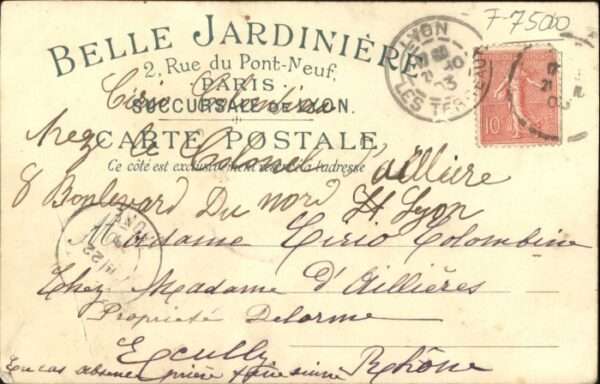 F-7500
BELLE JARDINIÈRE
2, Rue du Pont-Neuf,
PARIS
SUCCURSALE DE LYON.
CARTE POSTALE
Ce côté est exclusivement réservé à l'adresse
LYON
LES TERREAUX
03
10
Cirio Colombine
chez le Colonel d'aillière
8 Boulevard Du nord
Lyon
Madame Cirio Colombine
Chez Madame D'Aillières
Propriété Delorme
Ecully
Rhône
En cas absence prière faire suivre